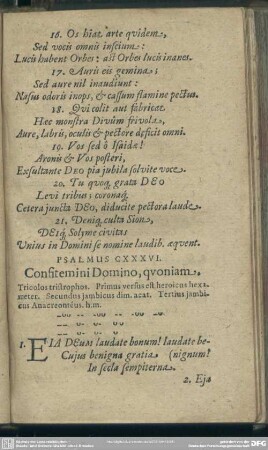 16. Os hiat arte quidem,
Sed vocis omnii inscium:
Lucis hubent Orbes: ast Orbes lucis inanes.
17. Auris eis gemina;
Sed aure nil inaudiunt:
Nasus odoris inops, & cassum flamine pectus.
18. Qvi colit aut fabricat
Hæc monstra Divûm frivola,
Aure, labris, oculis & pectore deficit omni.
19. Vos sed ô Isaidæ!
Aronis & Vos posteri,
Exsultante DEO pia jubila solvite voce.
20. Tu qvoq; grata DEO
Levi tribus; coronaq;
Cetera juncta DEO, diducite pectora laude.
21. Deniq; culta Sion,
DEIq; Solymæ civitas
Unius in Domini se nomine laudib. æqvent.
PSALMUS CXXXVI.
Confitemini Domino, qvoniam.
Tricolos tristrophos. Primus versus est heroicus hexa-
meter. Secundus jambicus dim. acat. Tertius jambi-
cus Anacreonteus. h.m.
1. EIA DEum laudate bonum! laudate be-
Cujus benigna gratia (nignum!
In secla sempiterna.
2. Eja